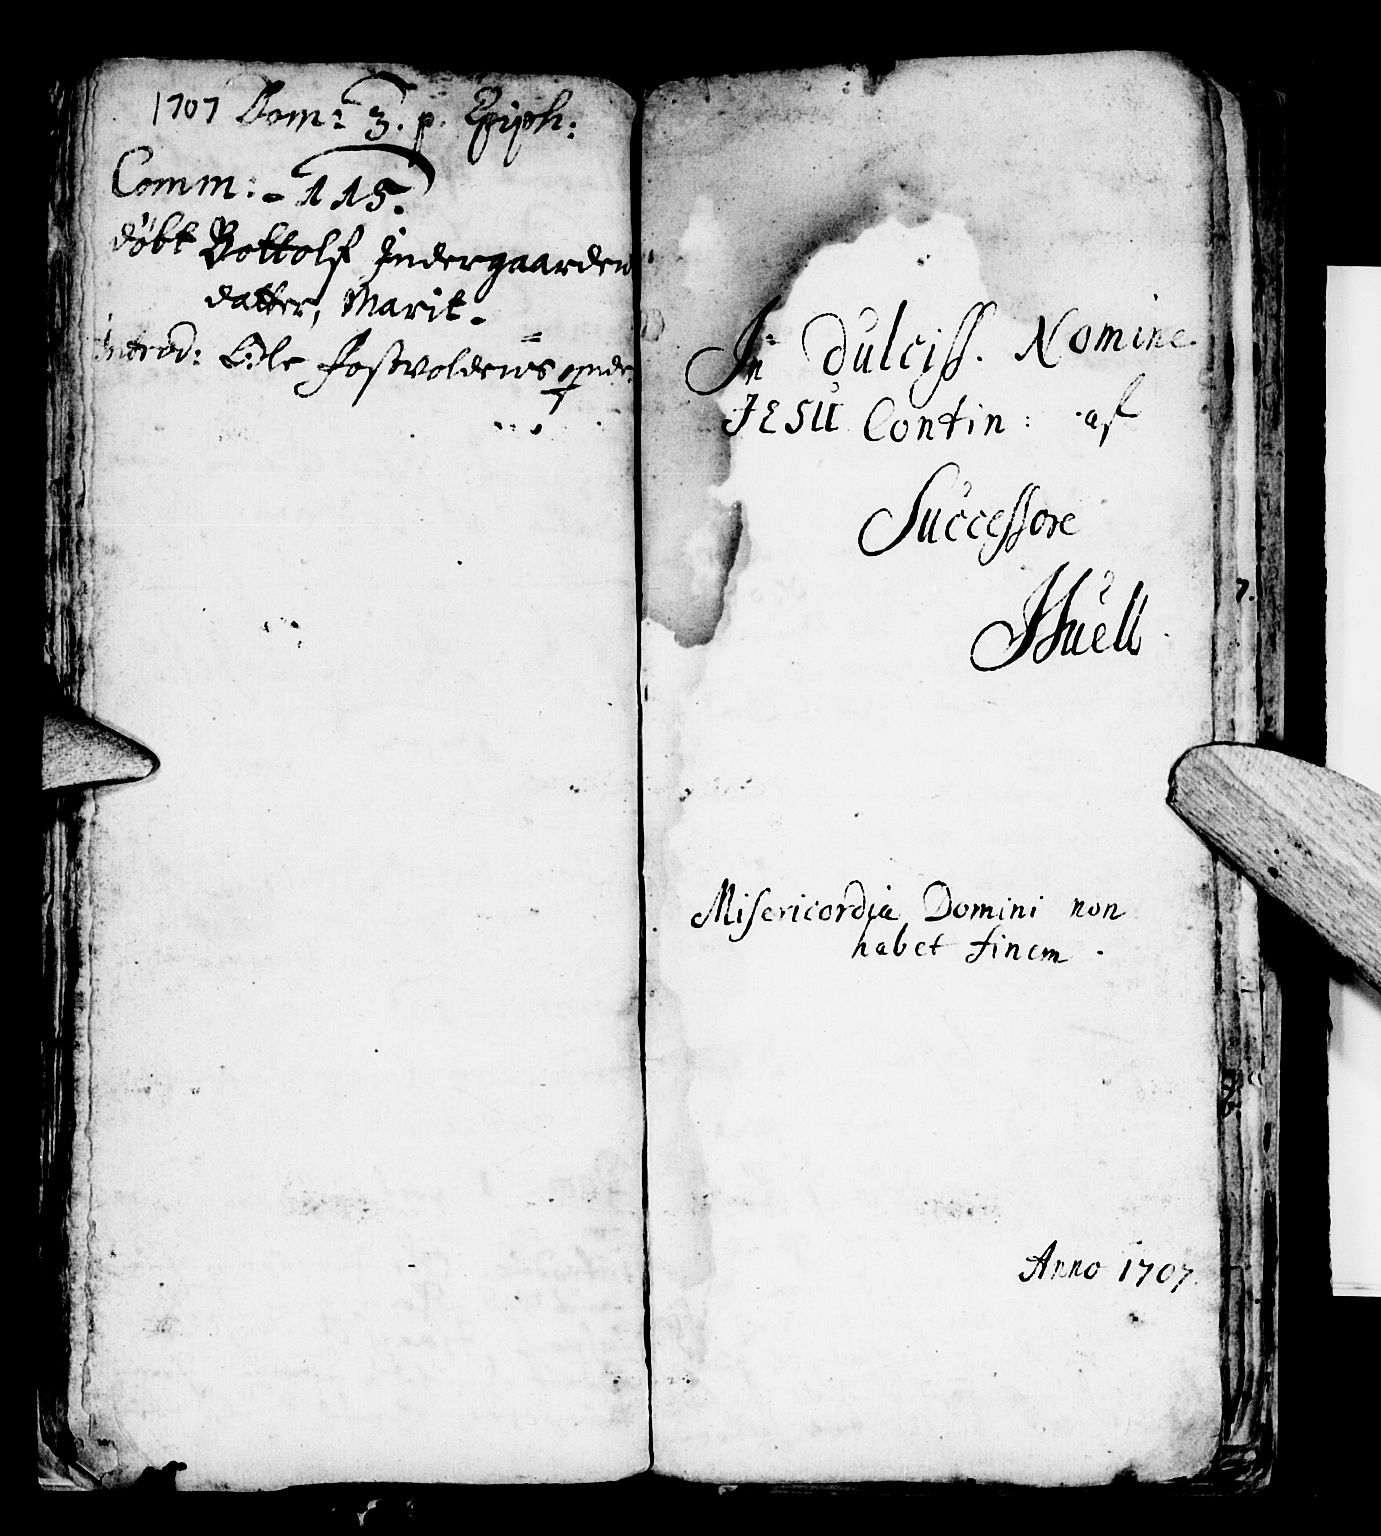 1707 Dom: 3. p. Epiph:
Comm: - 115.
döbt Bottolf Indergaarden
datter, Marit.
Introd: Ole
In dulciss. Nomine
JESU Contin: af
Successore
Misericordia Domini non
habet finem.
Anno 1707.